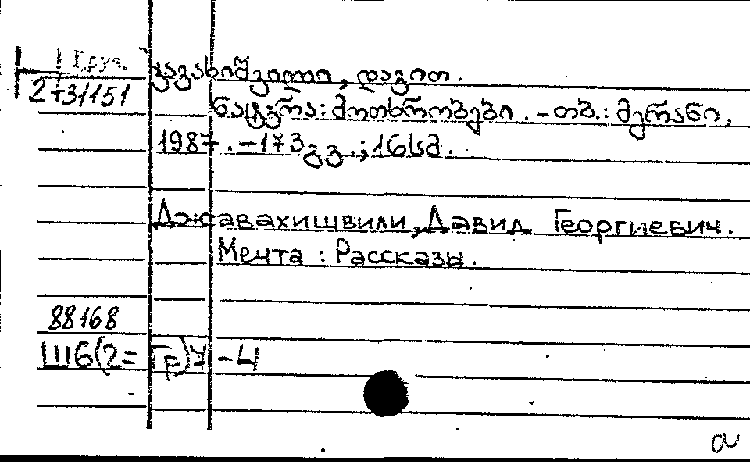 Груз.
2-31151
ჯავახიშვილი, დავით.
ნატვრა: მოთხრობები. - თბ.: მერანი,
1987. - 173გვ.; 16სმ.
Джавахишвили, Давид Георгиевич.
Мечта : Рассказы.
88168
Ш6(2=Гр)7-4